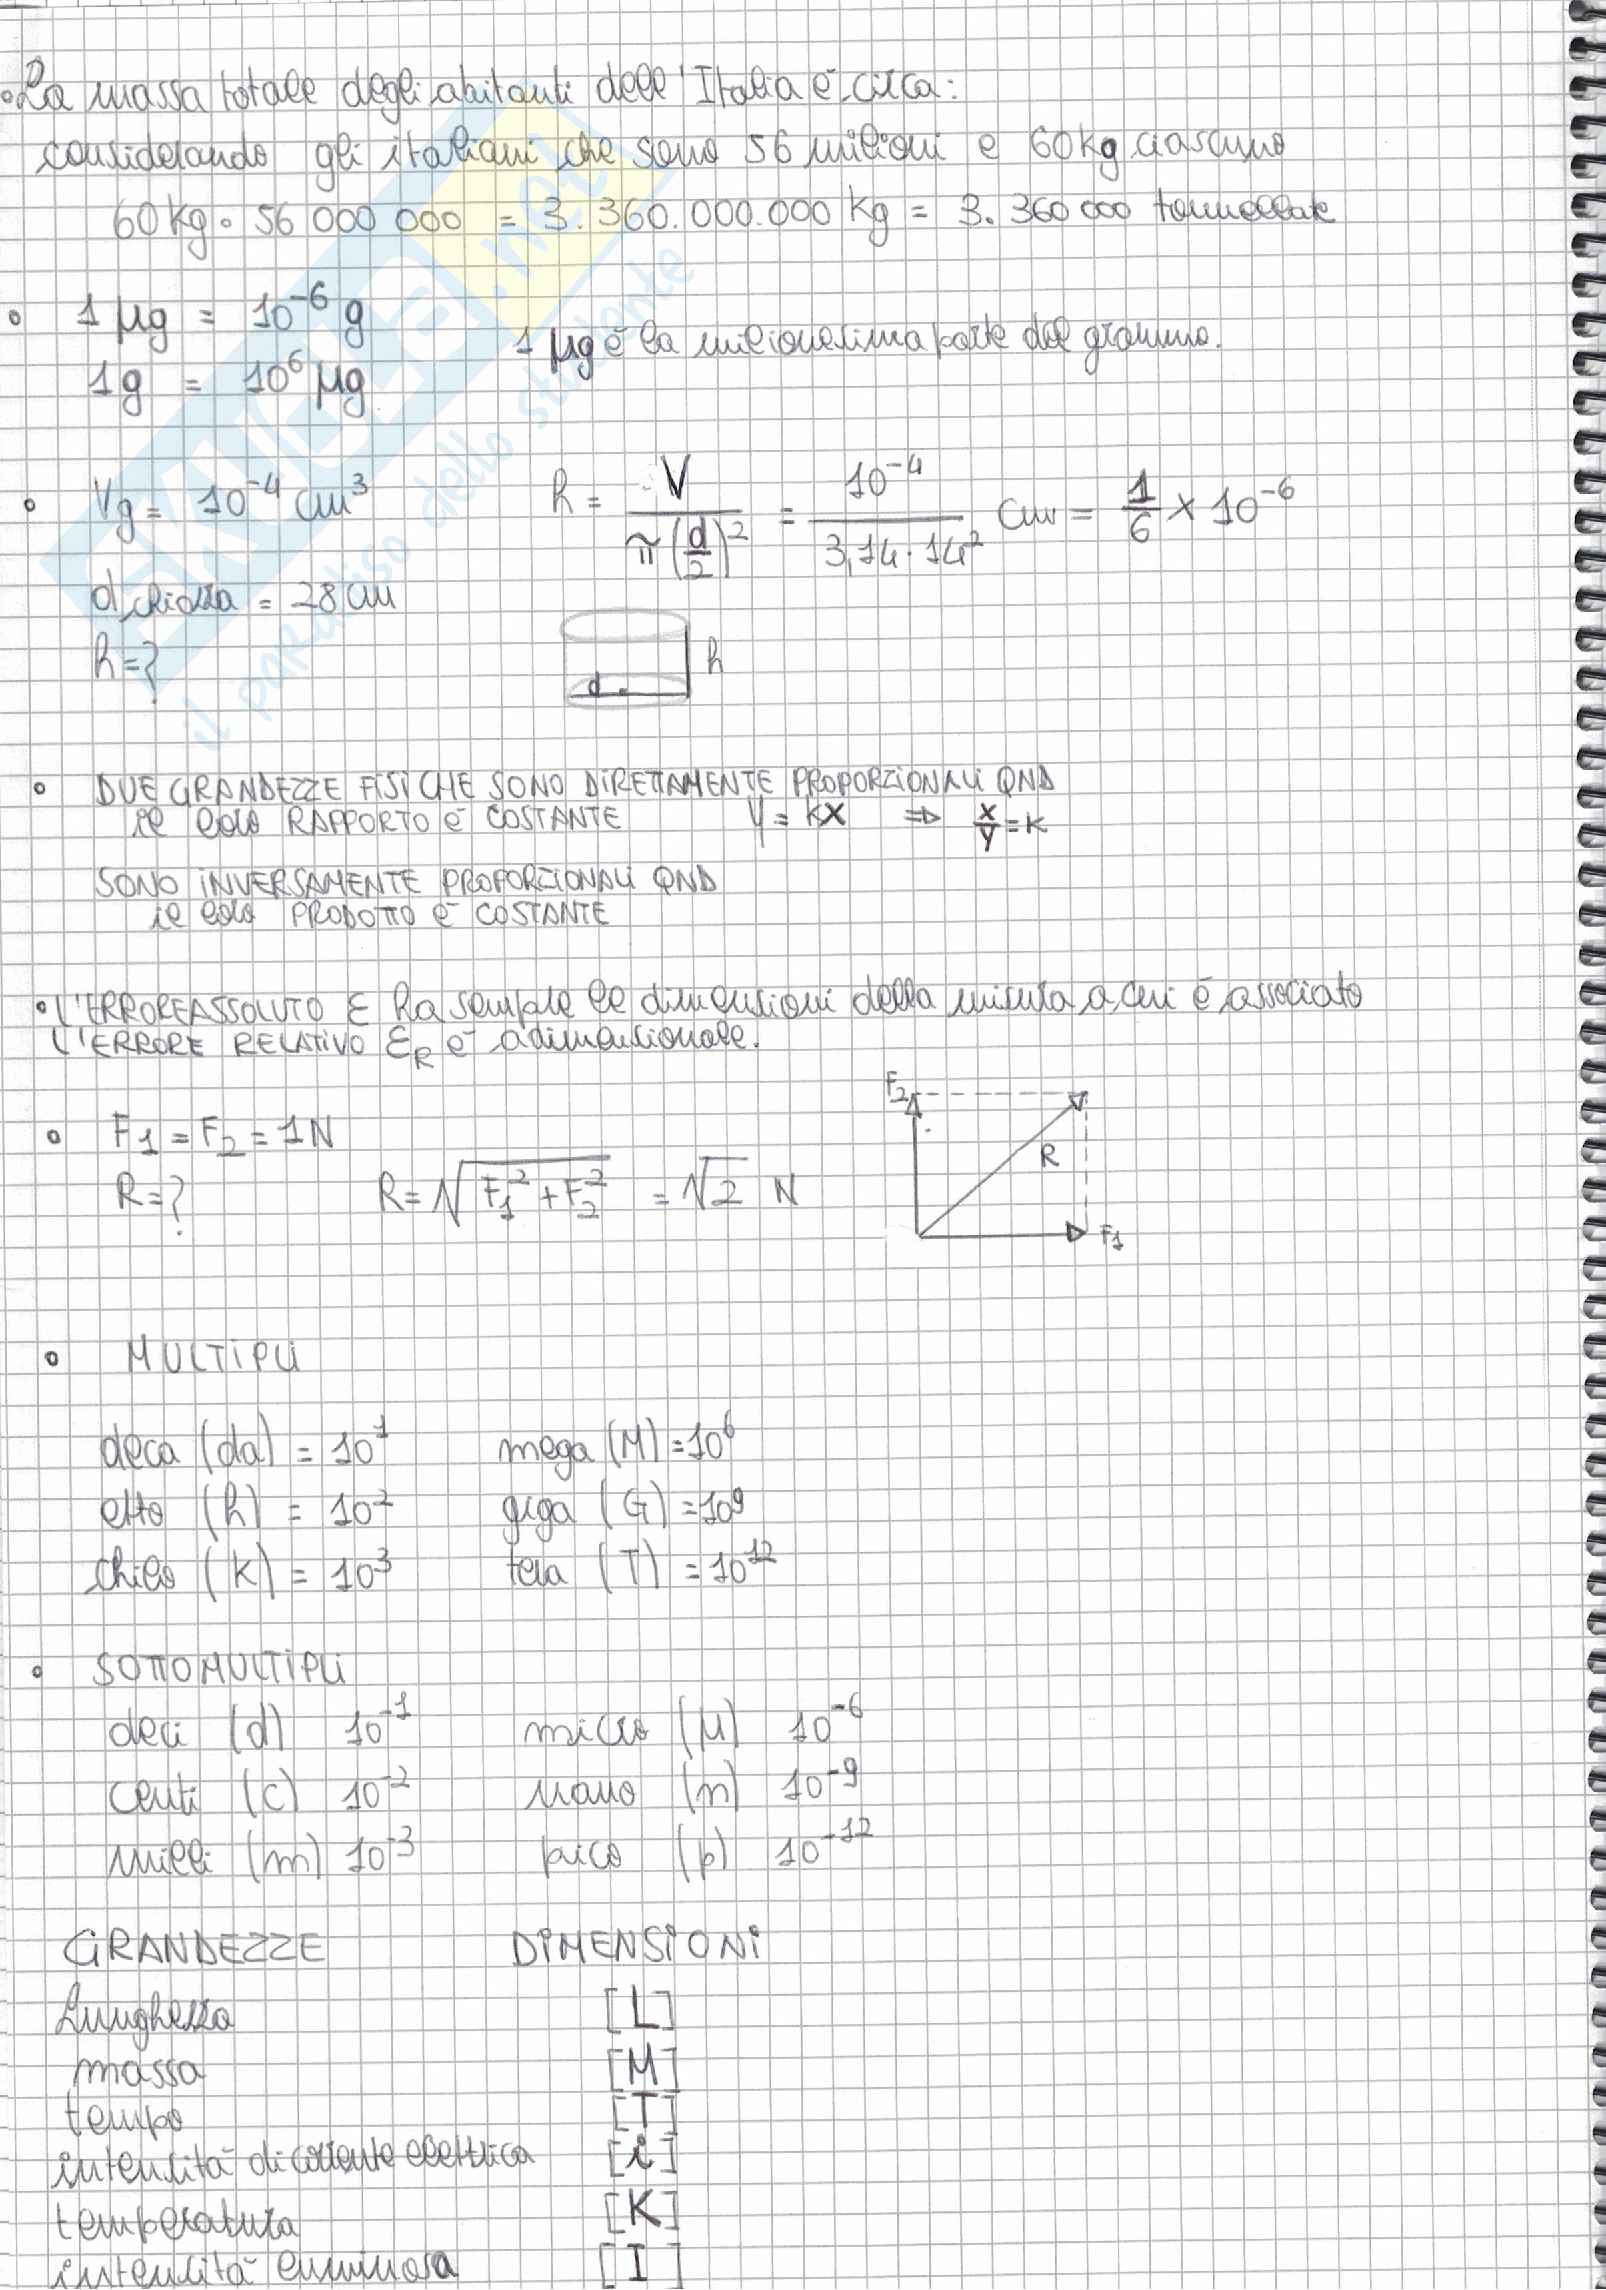 •La massa totale degli abitanti dell'Italia è circa:
considerando gli italiani che sono 56 milioni e 60kg ciascuno
60Kg • 56 000 000 = 3.360.000.000 Kg = 3.360 000 tonnellate
• 1 μg = 10⁻⁶ g
1 μg è la milionesima parte del grammo.
1g = 10⁶ μg
• Vg = 10⁻⁴ cm³ h = V / π (d/2)² = 10⁻⁴ / 3,14 · 14² cm = 1/6 × 10⁻⁶
d chiazza = 28 cm
h = ?
d h
• DUE GRANDEZZE FISICHE SONO DIRETTAMENTE PROPORZIONALI QND
il loro RAPPORTO è COSTANTE y = kx ⇒ x/y = K
SONO INVERSAMENTE PROPORZIONALI QND
il loro PRODOTTO è COSTANTE
• L'ERRORE ASSOLUTO ε ha sempre le dimensioni della misura a cui è associato
L'ERRORE RELATIVO εR è adimensionale.
• F₁ = F₂ = 1N
R = ? R = √F₁² + F₂² = √2 N
F₂
R
F₁
• MULTIPLI
deca (da) = 10¹ mega (M) = 10⁶
etto (h) = 10² giga (G) = 10⁹
chilo (K) = 10³ tera (T) = 10¹²
• SOTTOMULTIPLI
deci (d) 10⁻¹ micro (μ) 10⁻⁶
centi (c) 10⁻² nano (n) 10⁻⁹
milli (m) 10⁻³ pico (p) 10⁻¹²
GRANDEZZE DIMENSIONI
Lunghezza [L]
massa [M]
tempo [T]
intensità di corrente elettrica [i]
temperatura [K]
intensità luminosa [I]
SKUOLA.net
il paradiso dello studente